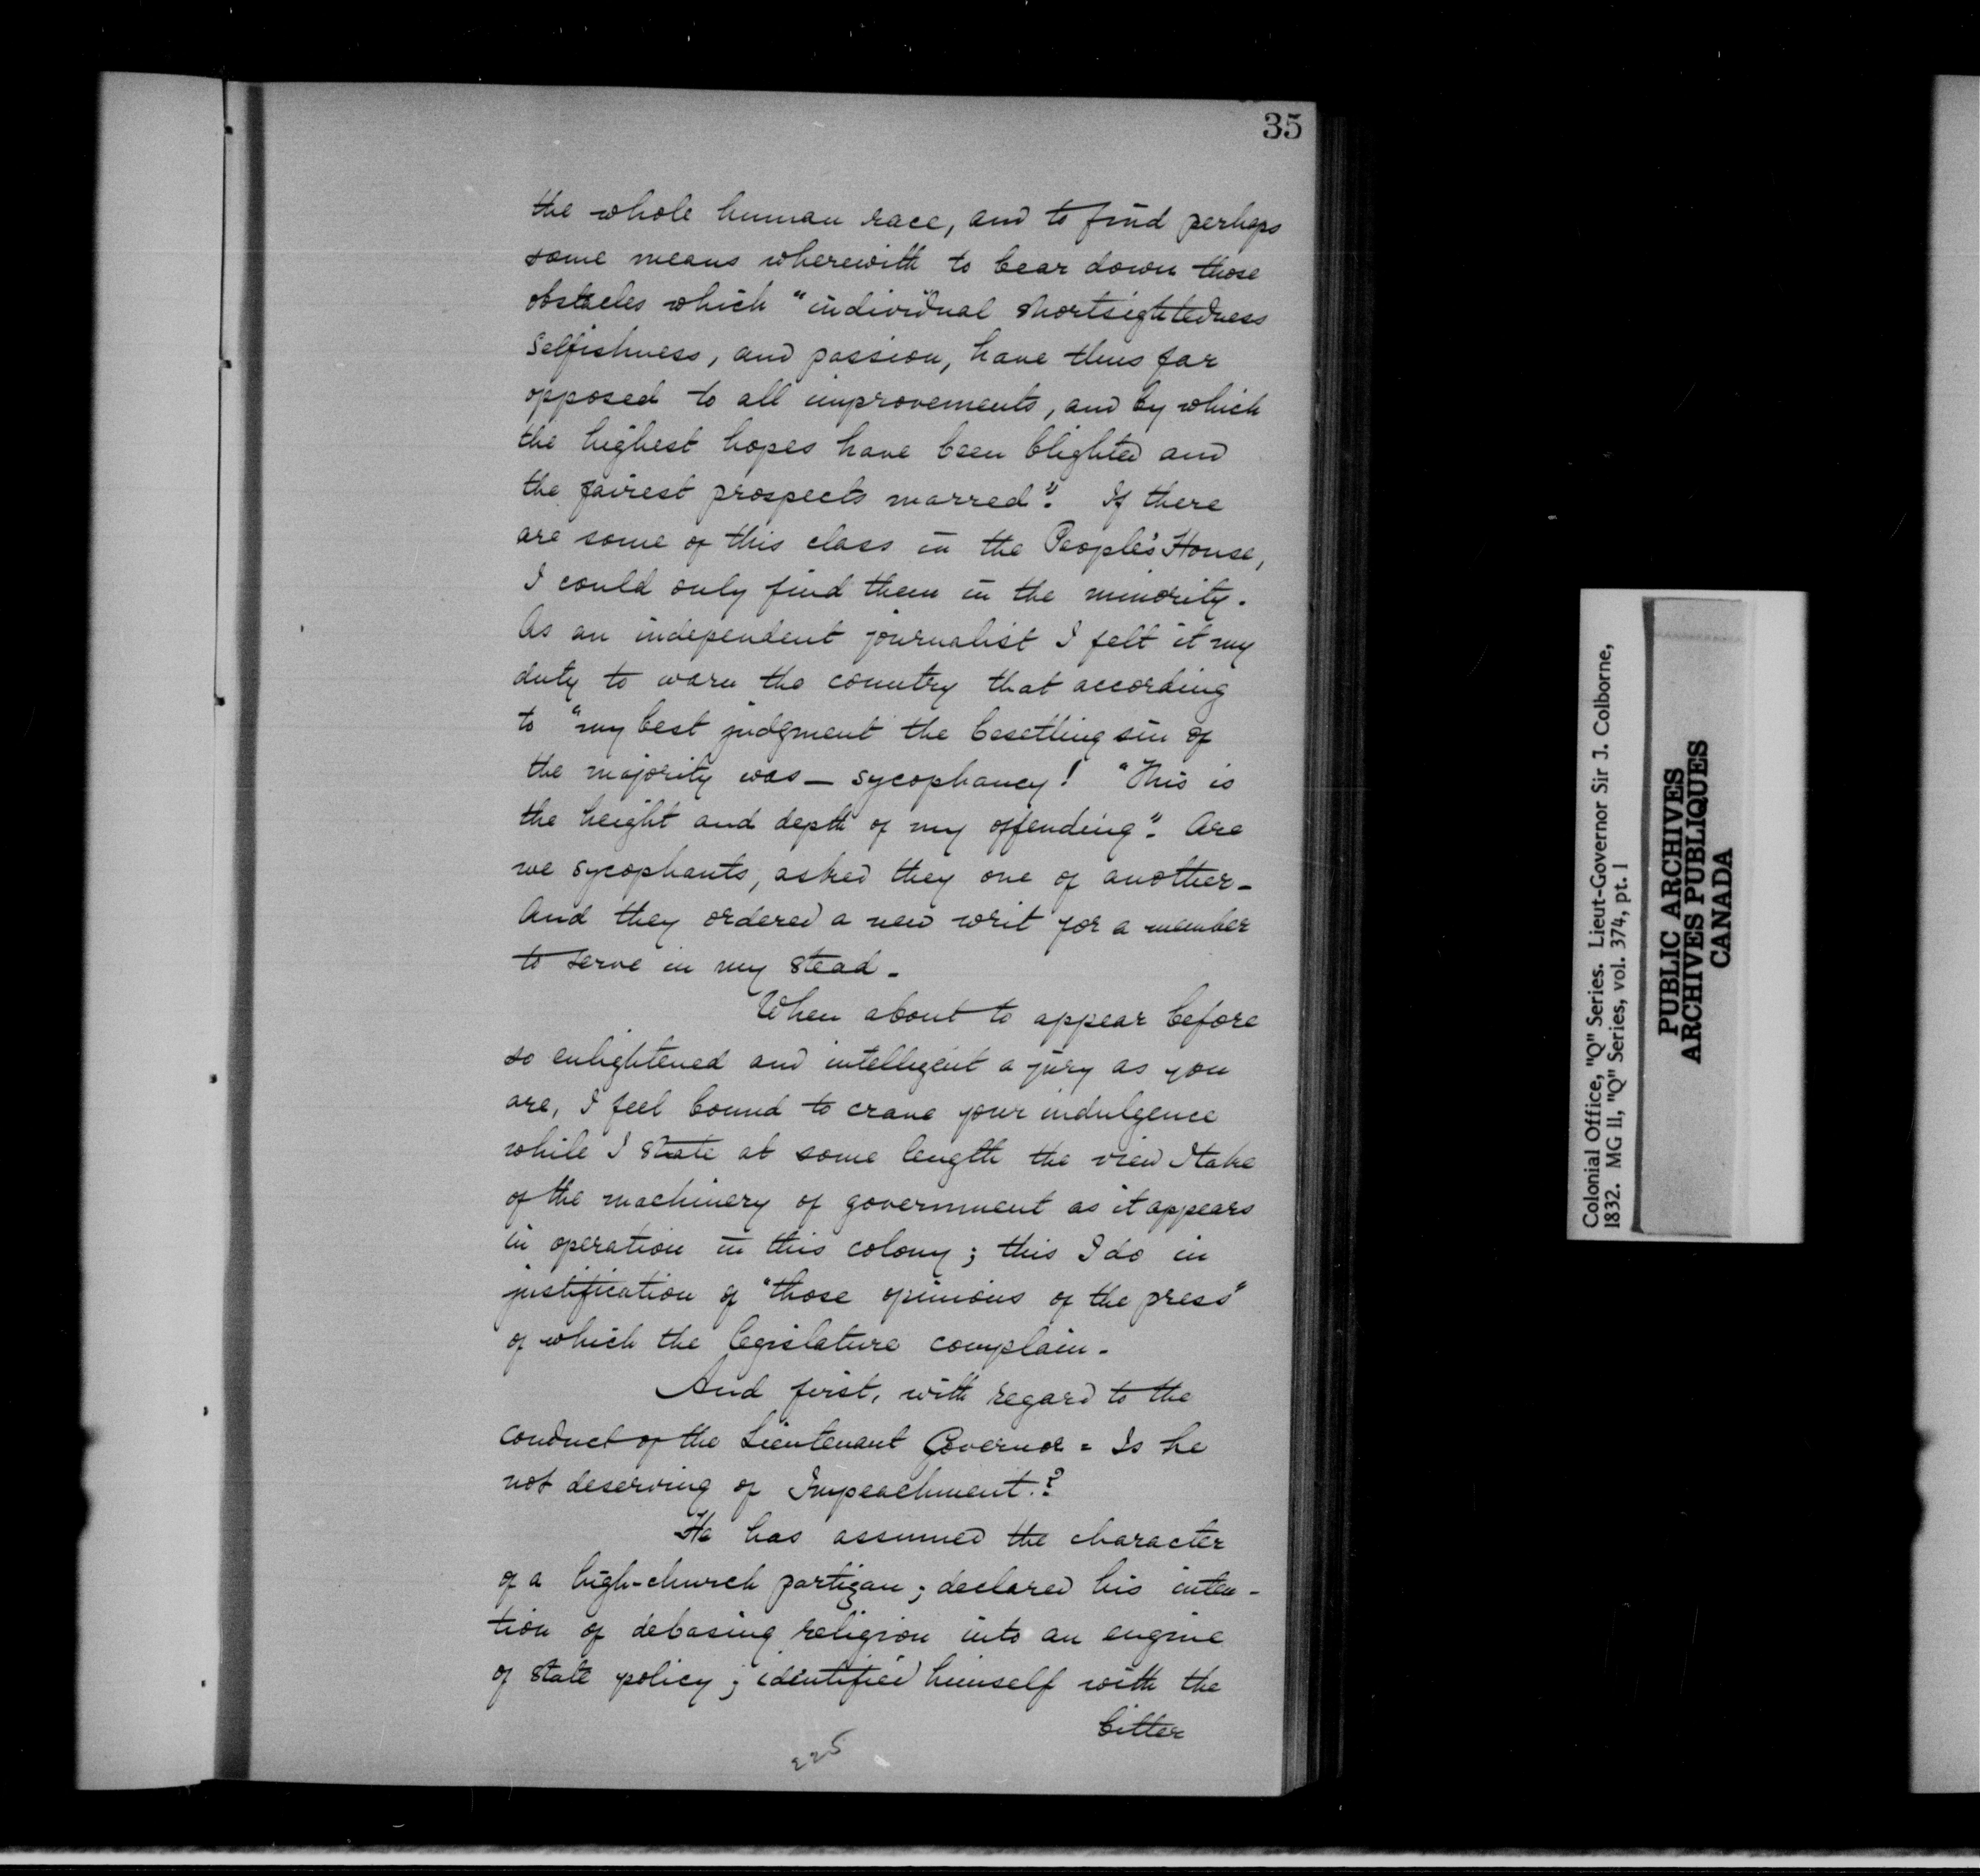 35
the whole human race, and to find perhaps
some means wherewith to bear down those
obstacles which "individual shortsightedness
selfishness, and passion, have thus far
opposed to all improvements, and by which
the highest hopes have been blighted and
the fairest prospects marred". If there
are some of this class in the People's House,
I could only find them in the minority.
As an independent journalist I felt it my
duty to warn the country that according
to "my best judgment the besetting sin of
the majority was — sycophancy! "This is
the height and depth of my offending". Are
we sycophants, asked they one of another -
And they ordered a new writ for a member
to serve in my stead -
When about to appear before
so enlightened and intelligent a jury as you
are, I feel bound to crave your indulgence
while I state at some length the view I take
of the machinery of government as it appears
in operation in this colony; this I do in
justification of "those opinions of the press"
of which the legislature complain -
And first, with regard to the
conduct of the Lieutenant Governor = Is he
not deserving of Impeachment.?
He has assumed the character
of a high-church partizan; declared his inten-
tion of debasing religion into an engine
of state policy; identified himself with the
bitter
225
Colonial Office, "Q" Series. Lieut-Governor Sir J. Colborne,
1832. MG 11, "Q" Series, vol. 374, pt. 1
PUBLIC ARCHIVES
ARCHIVES PUBLIQUES
CANADA